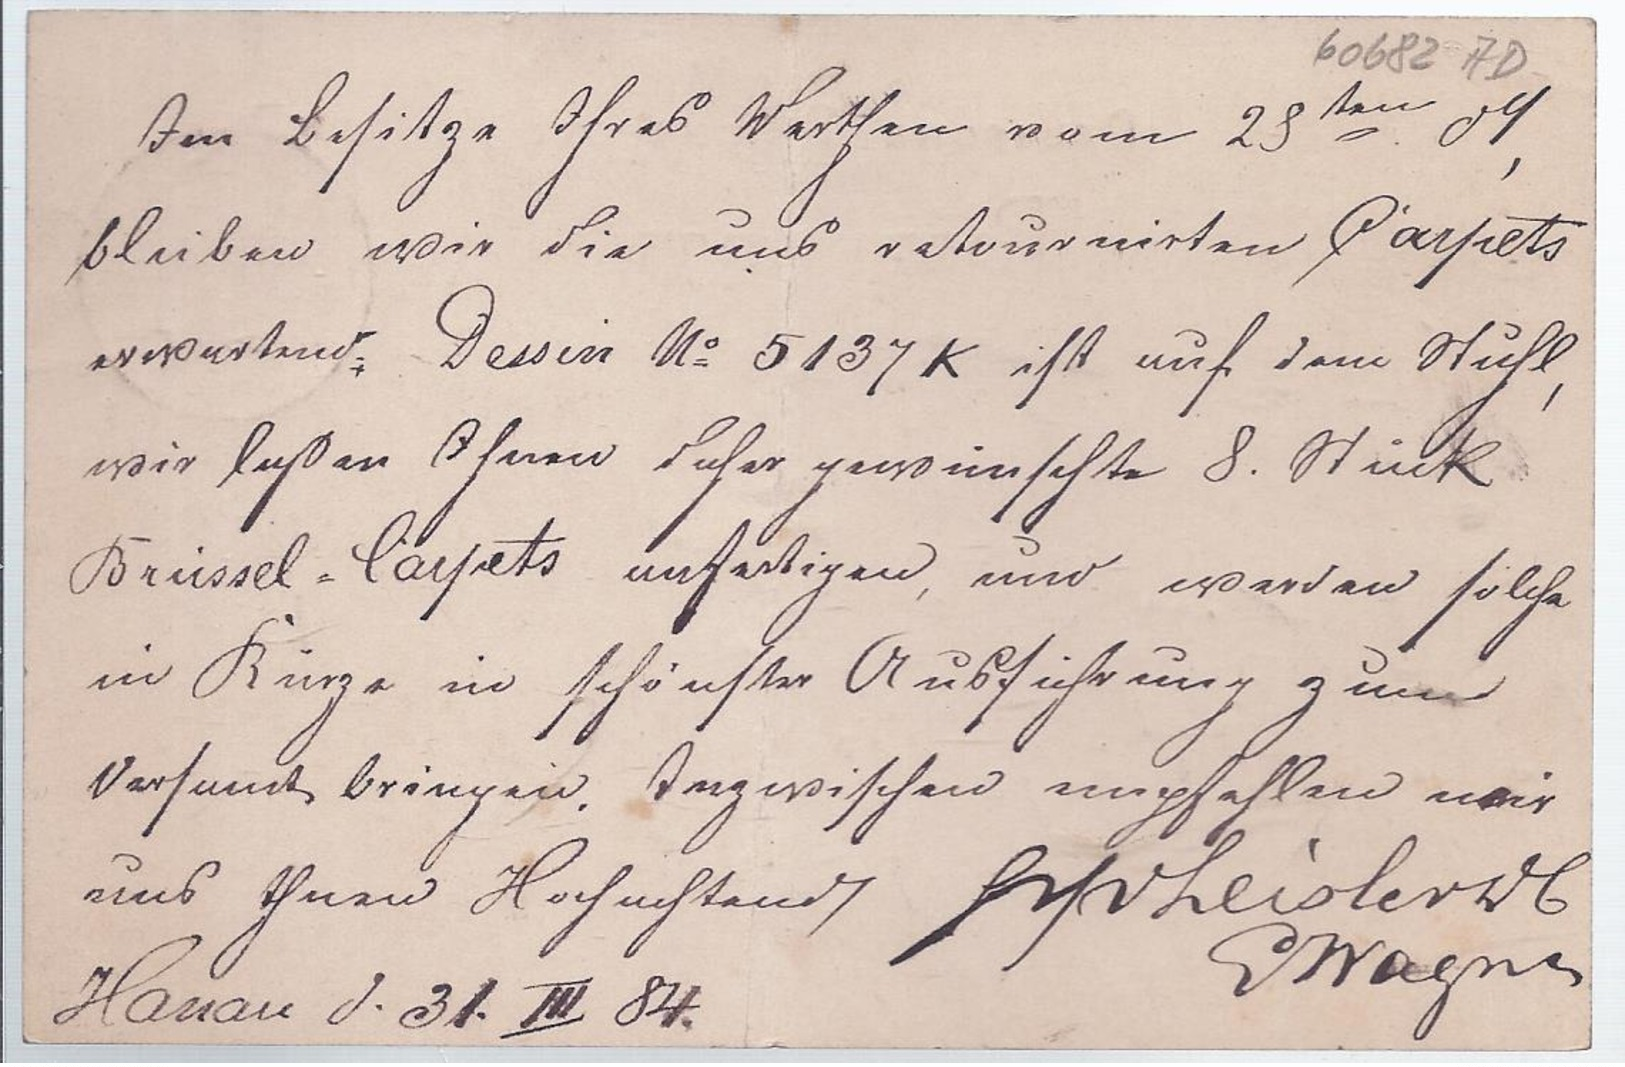 60682 AD
Im Besitze Ihres Werthen vom 28ten
bleiben wir die uns retournirten Carpets
erwartend. Dessin No 5137 K ist auf dem Stuhl,
wir laßen Ihnen daher gewünschte 8. Stück
Brüssel-Carpets anfertigen, und werden solche
in Kürze in schönster Ausführung zum
Versandt bringen. Inzwischen empfehlen wir
uns Ihnen Hochachtend
Leisler
Wagner
Hanau d. 31. III 84.